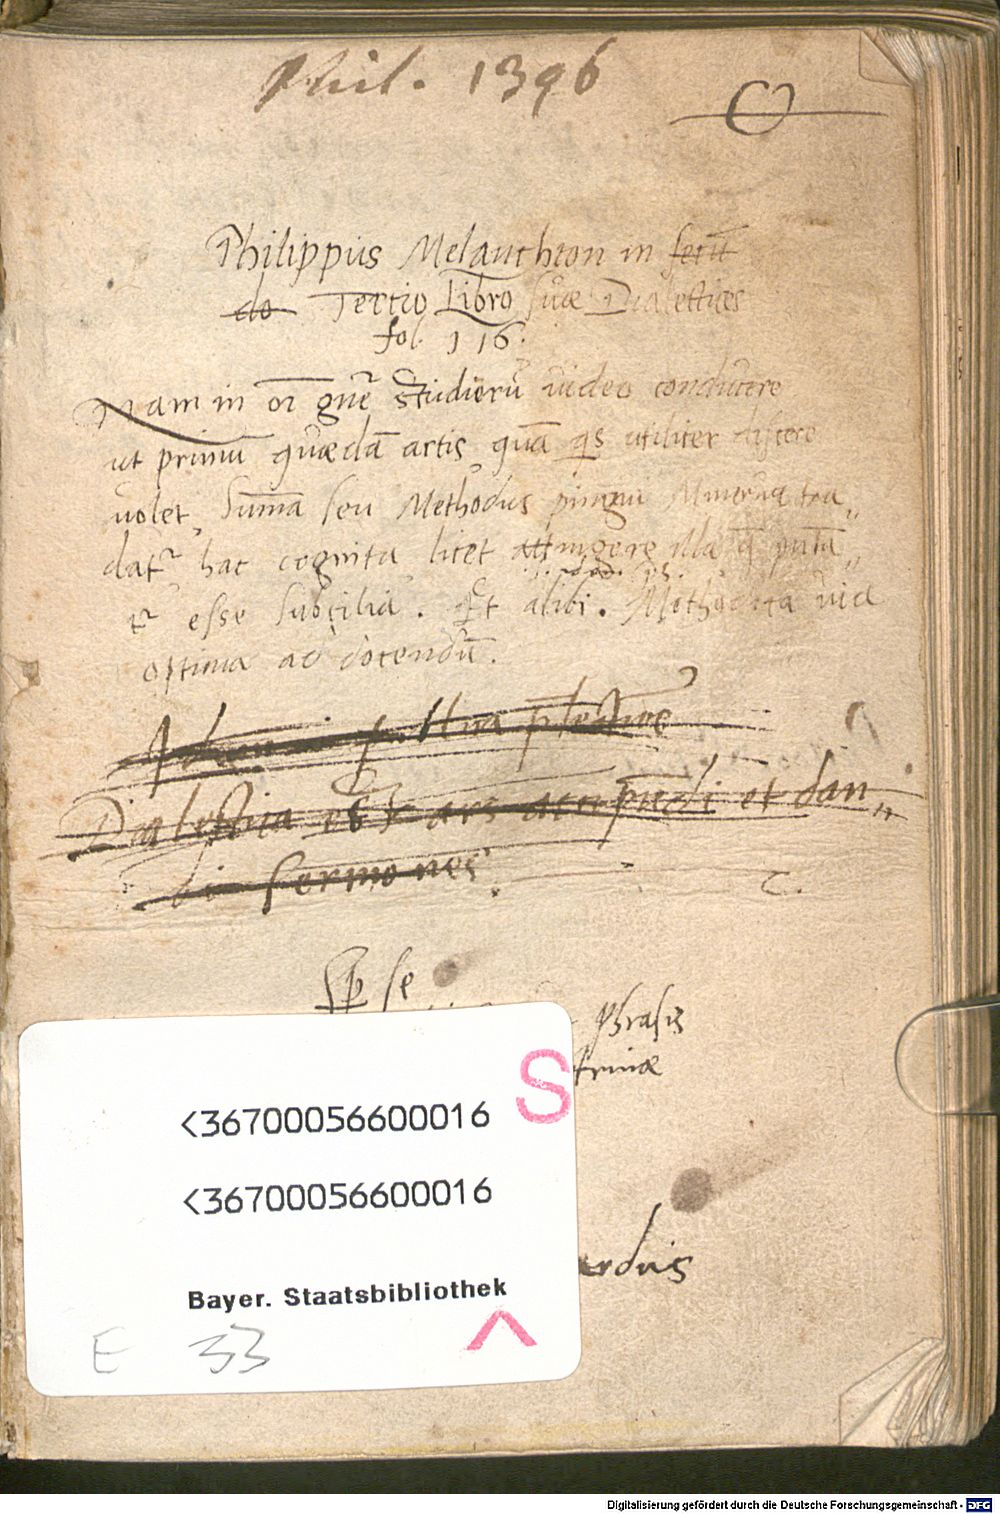 Phil. 1396
Philippus Melanchton in secū
do Tertio Libro suæ Dialectices
fol. 116.
Nam in oī gn̄e Studiorū video conducere
ut primū quædā artis quā qs utiliter discere
volet, Sum̄a seu Methodus pingui Minerva tra„
datr hac cognita licet attingere illa q̄ putā„
tr esse subtilia. Et alibi. Methodica via
optima ad docendū.
Dialectica est ars accipiēdi et dan„
di sermones.
se
Phrasis
trinæ
<36700056600016
S
<36700056600016
ardus
Bayer. Staatsbibliothek
E 33
Digitalisierung gefördert durch die Deutsche Forschungsgemeinschaft - DFG